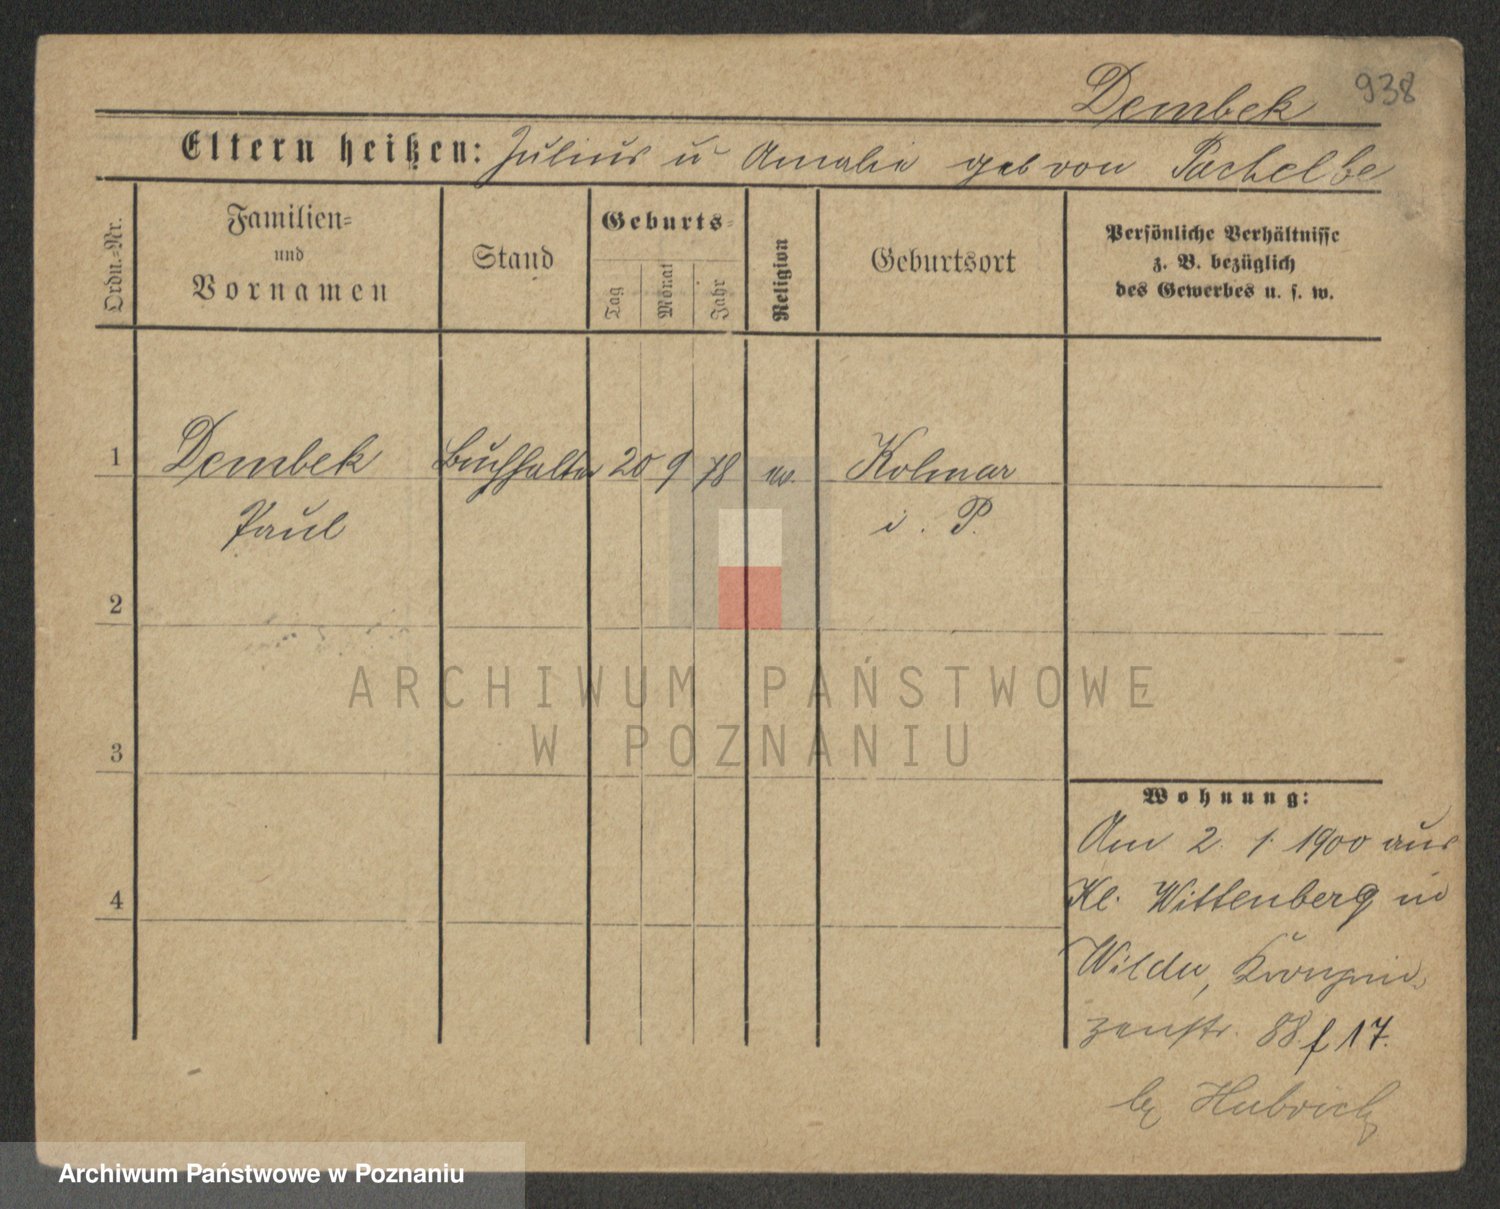 Dembek 938
Eltern heißen: Julius u Amalie geb von Pachelbe
Ordn.-Nr.
Familien-
und
Vornamen
Stand
Geburts-
Tag
Monat
Jahr
Religion
Geburtsort
Persönliche Verhältnisse
z. B. bezüglich
des Gewerbes u. s. w.
1 Dembek Buchhalter 20 9 78 ev. Kolmar
Paul i. P.
2
3
4
ARCHIWUM PAŃSTWOWE
W POZNANIU
Wohnung:
Am 2. 1. 1900 aus
Kl. Wittenberg in
Wilda, Kronprin-
zenstr. 88. f 17.
Hubrich
Archiwum Państwowe w Poznaniu